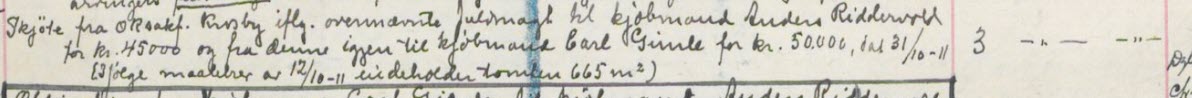 Skjöte fra ORsakf. Rusby iflg. ovennævnte fuldmagt til kjöbmand Anders Ridderwold
for kr. 45000 og fra denne igjen til kjöbmand Carl Gimle for kr. 50.000, dat 31/10-11 3 -"- -"-
(Ifölge maalebrev av 12/10-11 indeholder tomten 665 m²)